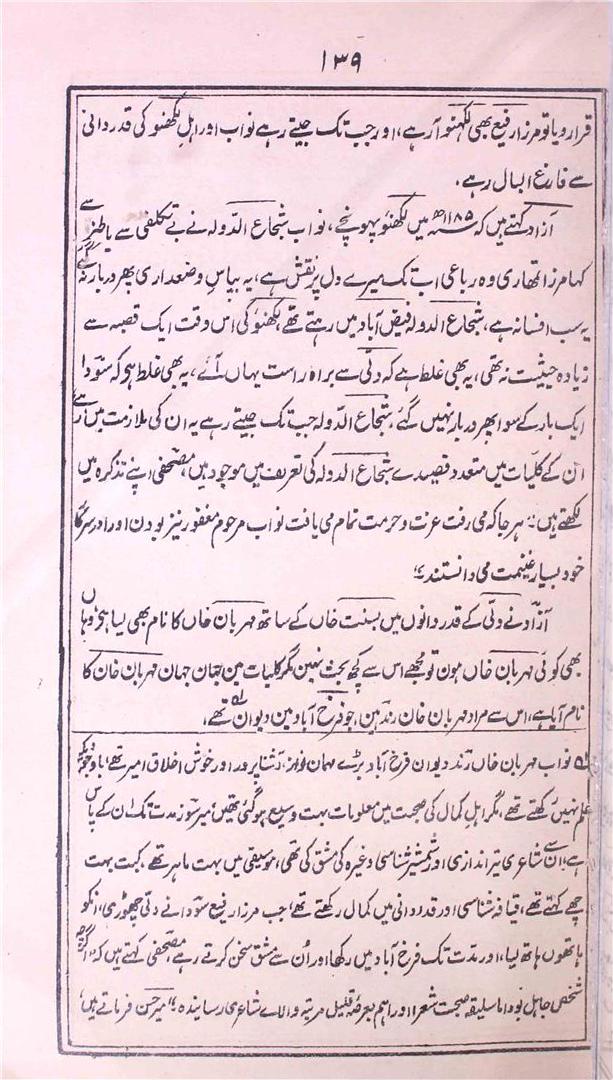 ۱۳۹
قرار دیا تو مرزا رفیع بھی لکھنؤ آرہے، اور جب تک جیتے رہے نواب اور اہل لکھنؤ کی قدردانی
سے فارغ البال رہے.
آزاد کہتے ہیں کہ ۱۱۸۵ھ میں لکھنؤ پہونچے، نواب شجاع الدولہ نے بے تکلفی سے یا طنز سے
کہا مرزا تمھاری وہ رباعی اب تک میرے دل پر نقش ہے، یہ بپاسِ وضعداری پھر دربار نہ گئے
یہ سب افسانہ ہے، شجاع الدولہ فیض آباد میں رہتے تھے، لکھنؤ کی اس وقت ایک قصبہ سے
زیادہ حیثیت نہ تھی، یہ بھی غلط ہے کہ دلّی سے براہ راست یہاں آئے، یہ بھی غلط ہو کہ سوؔدا
ایک بار کے سوا پھر دربار نہیں گئے، شجاع الدّولہ جب تک جیتے رہے یہ ان کی ملازمت میں رہے
ان کے کلیّات میں متعدد قصیدے شجاع الدولہ کی تعریف میں موجود ہیں، مصحفی اپنے تذکرہ میں
لکھتے ہیں: ہر جا کہ می رفت عزت و حرمت تمام می یافت نواب مرحوم مغفور نیز بودن او را در سرکار
خود بسیار غنیمت می دانستند"
آزاد نے دلّی کے قدر دانوں میں بسنت خاں کے ساتھ مہربان خاں کا نام بھی لیا ہے، وہاں
بھی کوئی مہربان خاں ہون تو مجھے اس سے کچھ بحث نہین مگر کلیات مین جہان جہان مہربان خان کا
نام آیا ہے، اس سے مراد مہربان خان رند ہین، جو فرخ آباد مین دیوان تھے،
نواب مہربان خاں رند دیوان فرخ آباد بڑے مہمان نواز، آشنا پرور اور خوش اخلاق امیر تھے، باوجودیکہ
علم نہیں رکھتے تھے، مگر اہل کمال کی صحبت میں معلومات بہت وسیع ہو گئی تھیں، میر سوز مدت تک ان کے پاس
رہے، ان سے شاعری تیر اندازی اور شمشیر شناسی وغیرہ کی مشق کی تھی، موسیقی میں بہت ماہر تھے، کبت بہت
اچھے کہتے تھے، قیافہ شناسی اور قدر دانی میں کمال رکھتے تھے، جب مرزا رفیع سوؔدا نے دتی چھوڑی، انکو
ہاتھوں ہاتھ لیا، اور مدت تک فرخ آباد میں رکھا اور اُن سے مشق سخن کرتے رہے، مصحفی کہتے ہیں کہ "اگرچہ
شخص جاہل بود اما سلیقہ صحبت شعرا او را ہم بعرصہ قلیل مرتبہ والاے شاعری رسانیدہ"، میر حسن فرماتے ہیں